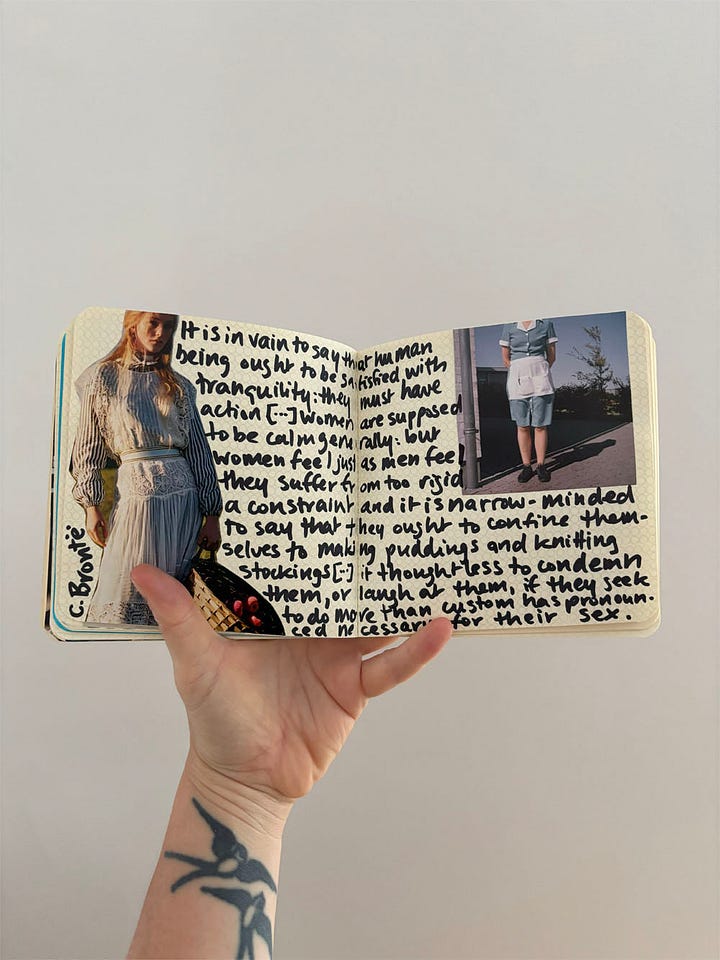 It is in vain to say that human
being ought to be satisfied with
tranquility: they must have
action [...] Women are supposed
to be calm generally: but
women feel just as men feel
they suffer from too rigid
a constraint and it is narrow-minded
to say that they ought to confine them-
selves to making puddings and knitting
stockings [...] it thoughtless to condemn
them, or laugh at them, if they seek
to do more than custom has pronoun-
ced necessary for their sex.
C. Brontë